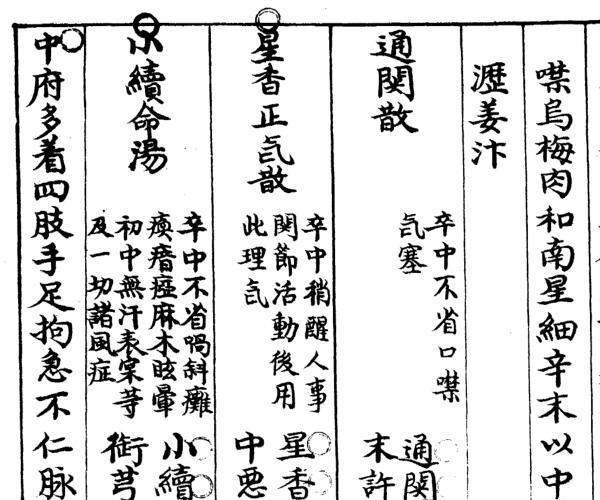 噤烏梅肉和南星細辛末以中
瀝姜汴
通関散
卒中不省口噤
氣塞
通関
末許
星香正氣散
卒中稍醒人事
関節活動後用
此理氣
星香
中悪
小續命湯
卒中不省喎斜癱
瘓瘖瘂麻木眩暈
初中無汗表实等
及一切諸風症
小續
衘芎
中府多着四肢手足拘急不仁脉